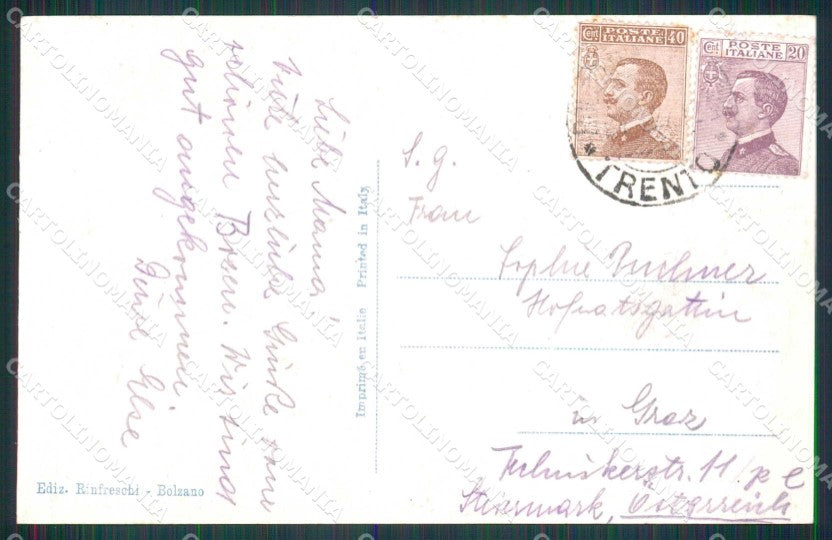 Cent POSTE 40
ITALIANE
Cent POSTE 20
ITALIANE
TRENTO
Liebe Mama!
Viele herzliche Grüße vom
schönen Bozen. Wir sind
gut angekommen
Deine Else
S. g.
Frau
Sophie
Hofratsgattin
in Graz
11
Steiermark, Österreich
Imprimé en Italie Printed in Italy
Ediz. Rinfreschi - Bolzano
CARTOLINOMANIA